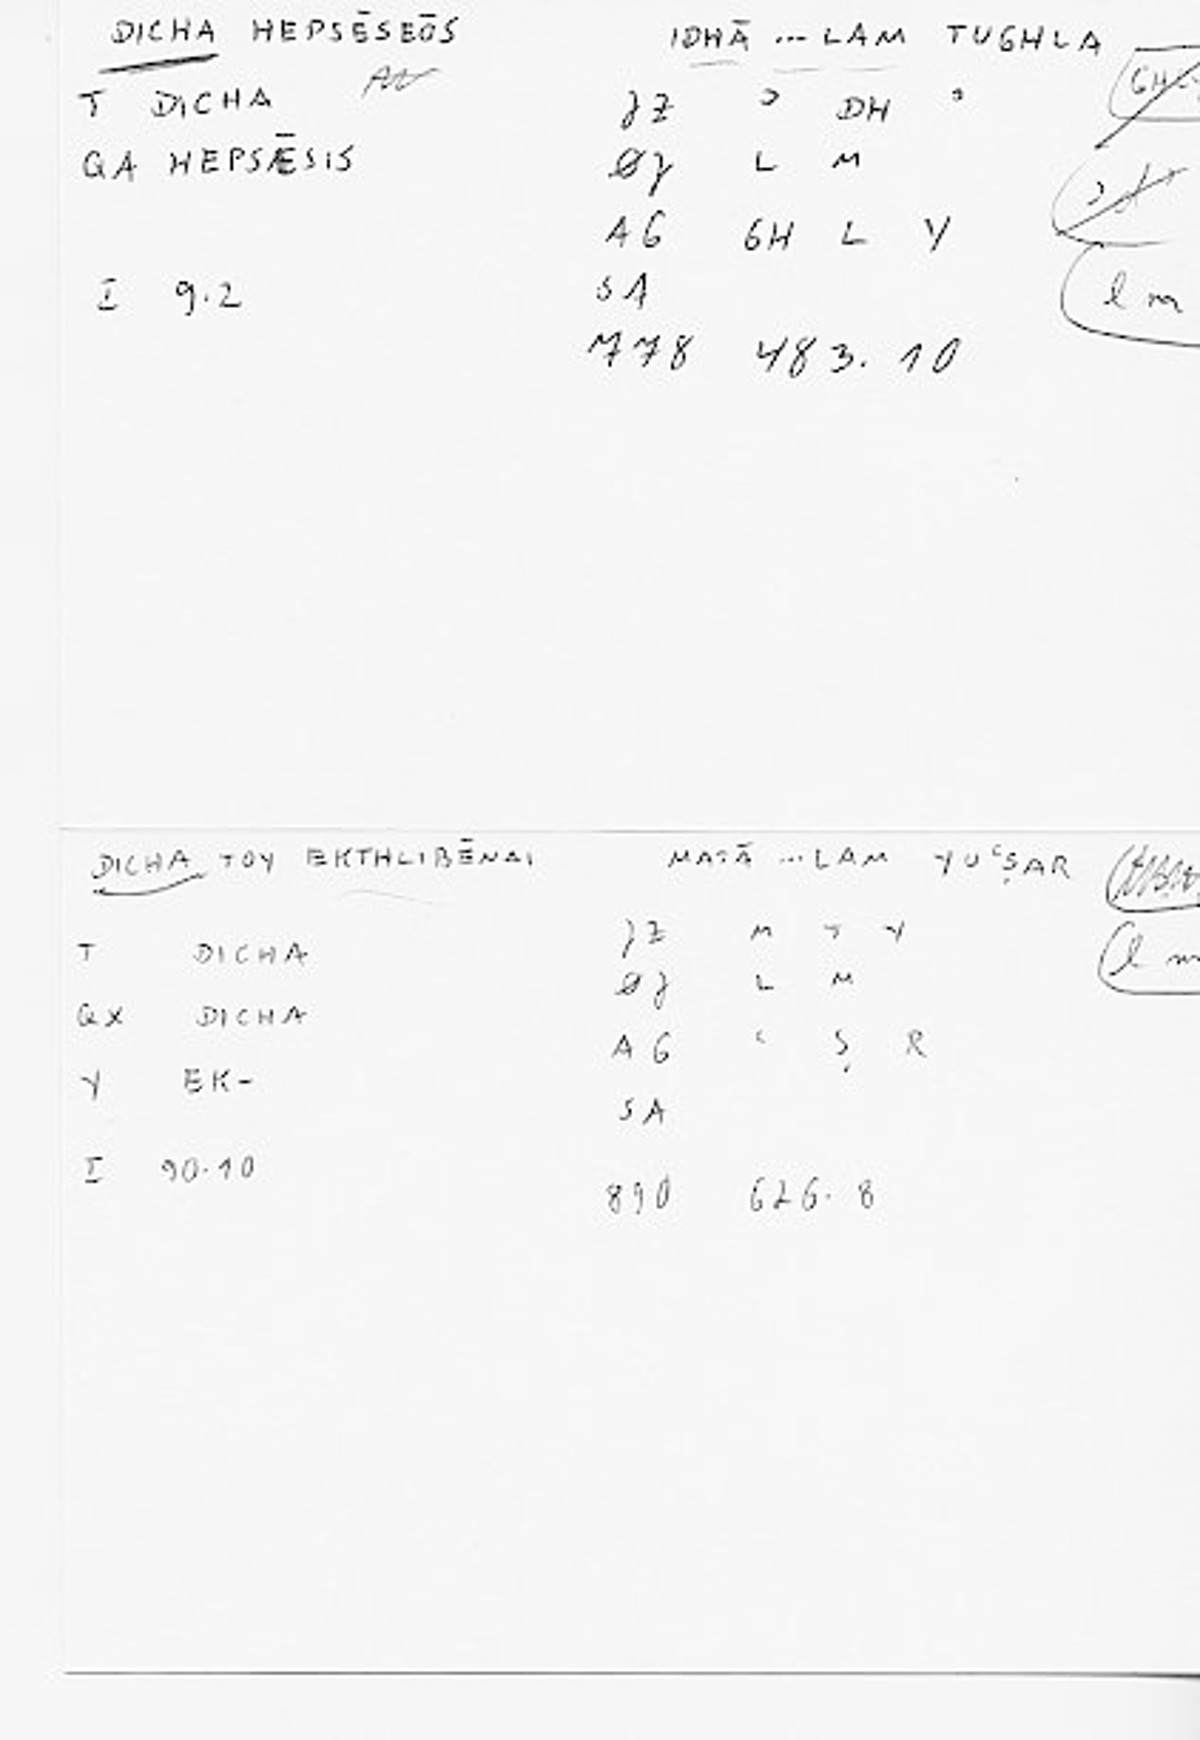 DICHA HEPSĒSEŌS
T DICHA
QA HEPSÆSIS
I 9.2
IDHĀ ... LAM TUGHLA
ʾ DH ʾ
L M
AG GH L Y
SA
778 483.10
GH
l m
DICHA TOY EKTHLIBĒNAI
T DICHA
QX DICHA
Y EK-
I 90.10
MATĀ ... LAM YUʿṢAR
M T Y
L M
AG ʿ Ṣ R
SA
890 626.8
l m